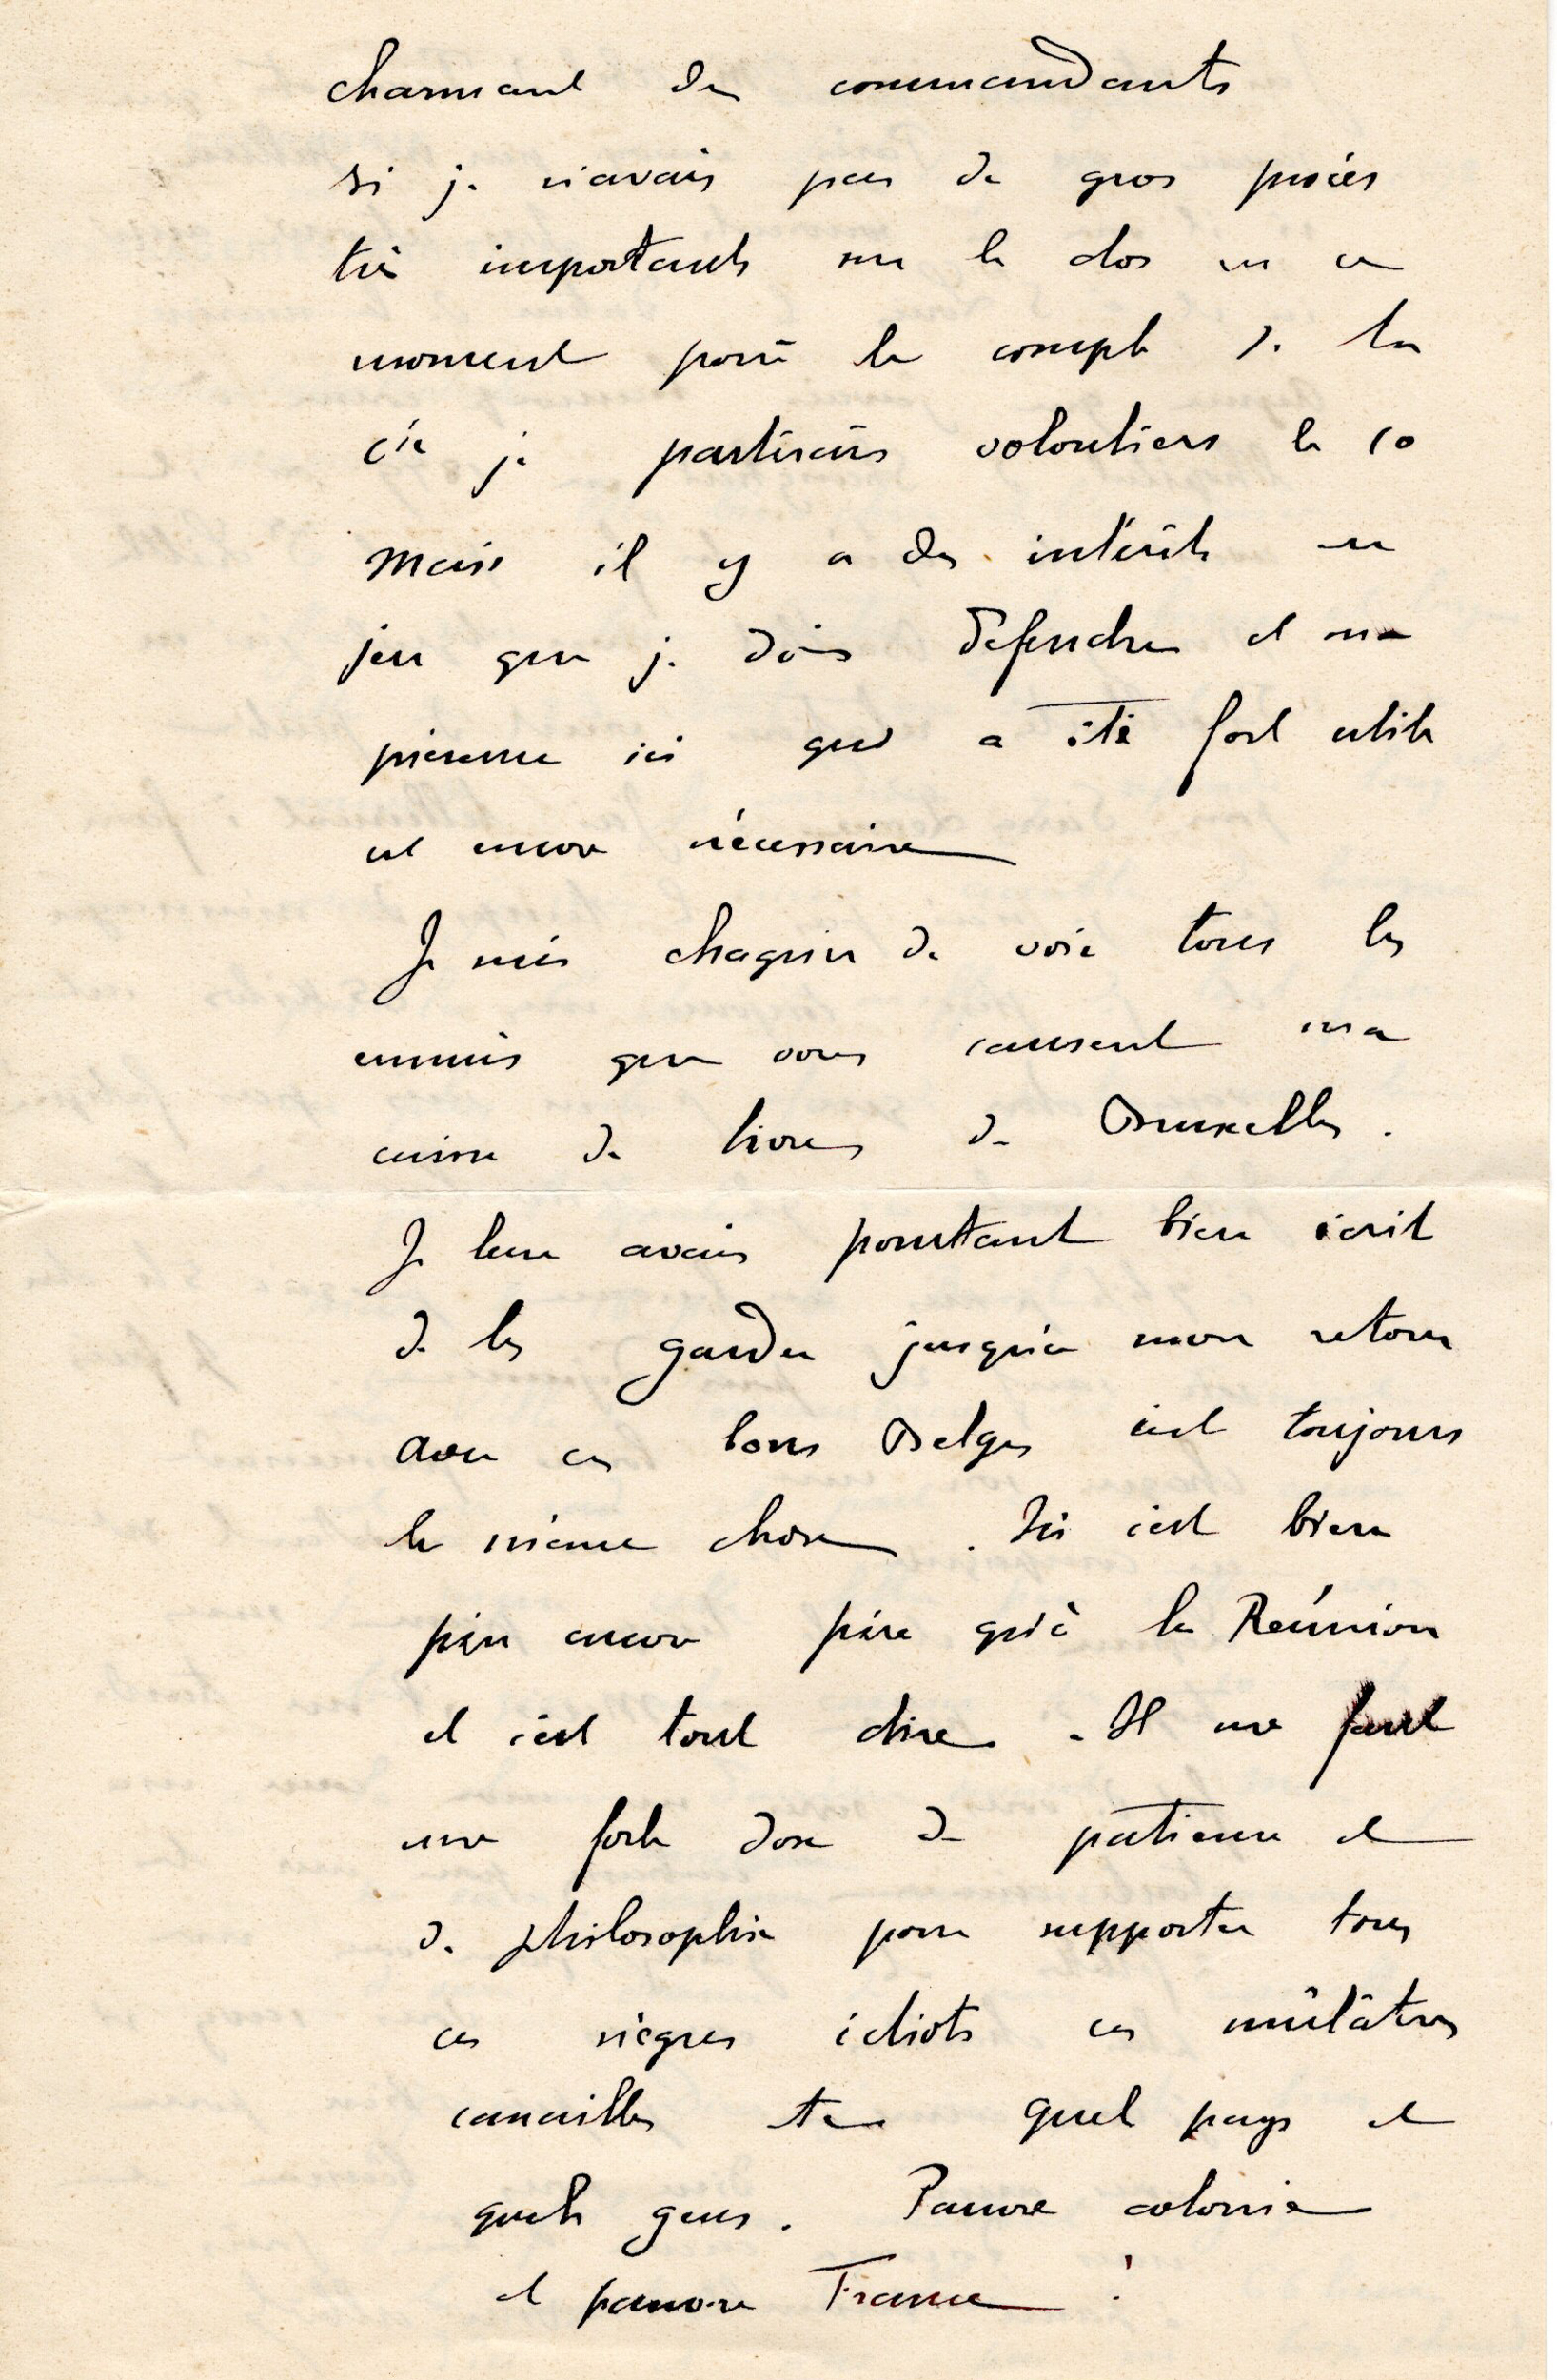 charmant des commandants
si je n'avais pas de gros procès
très importants sur le dos en ce
moment pour le compte de la
Cie je partirais volontiers le 10
mais il y a des intérêts en
jeu que je dois défendre et ma
présence ici qui a été fort utile
est encore nécessaire
Je suis chagrin de voir tous les
ennuis que vous causent ma
caisse de livres de Bruxelles.
Je leur avais pourtant bien écrit
de les garder jusqu'à mon retour
avec ces bons Belges c'est toujours
la même chose. Ici c'est bien
pire encore pire qu'à la Réunion
et c'est tout dire. Il me faut
une forte dose de patience et
de philosophie pour supporter tous
ces nègres idiots ces mulâtres
canailles etc quel pays et
quels gens. Pauvre colonie
et pauvre France !